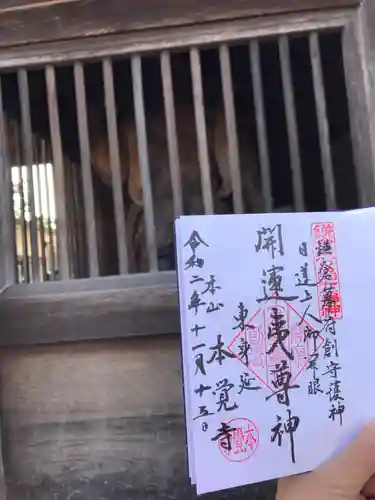 鎌倉幕府創守護神
日蓮上人御開眼
開運夷尊神
東身延
本山 本覺寺
令和二年十一月十五日